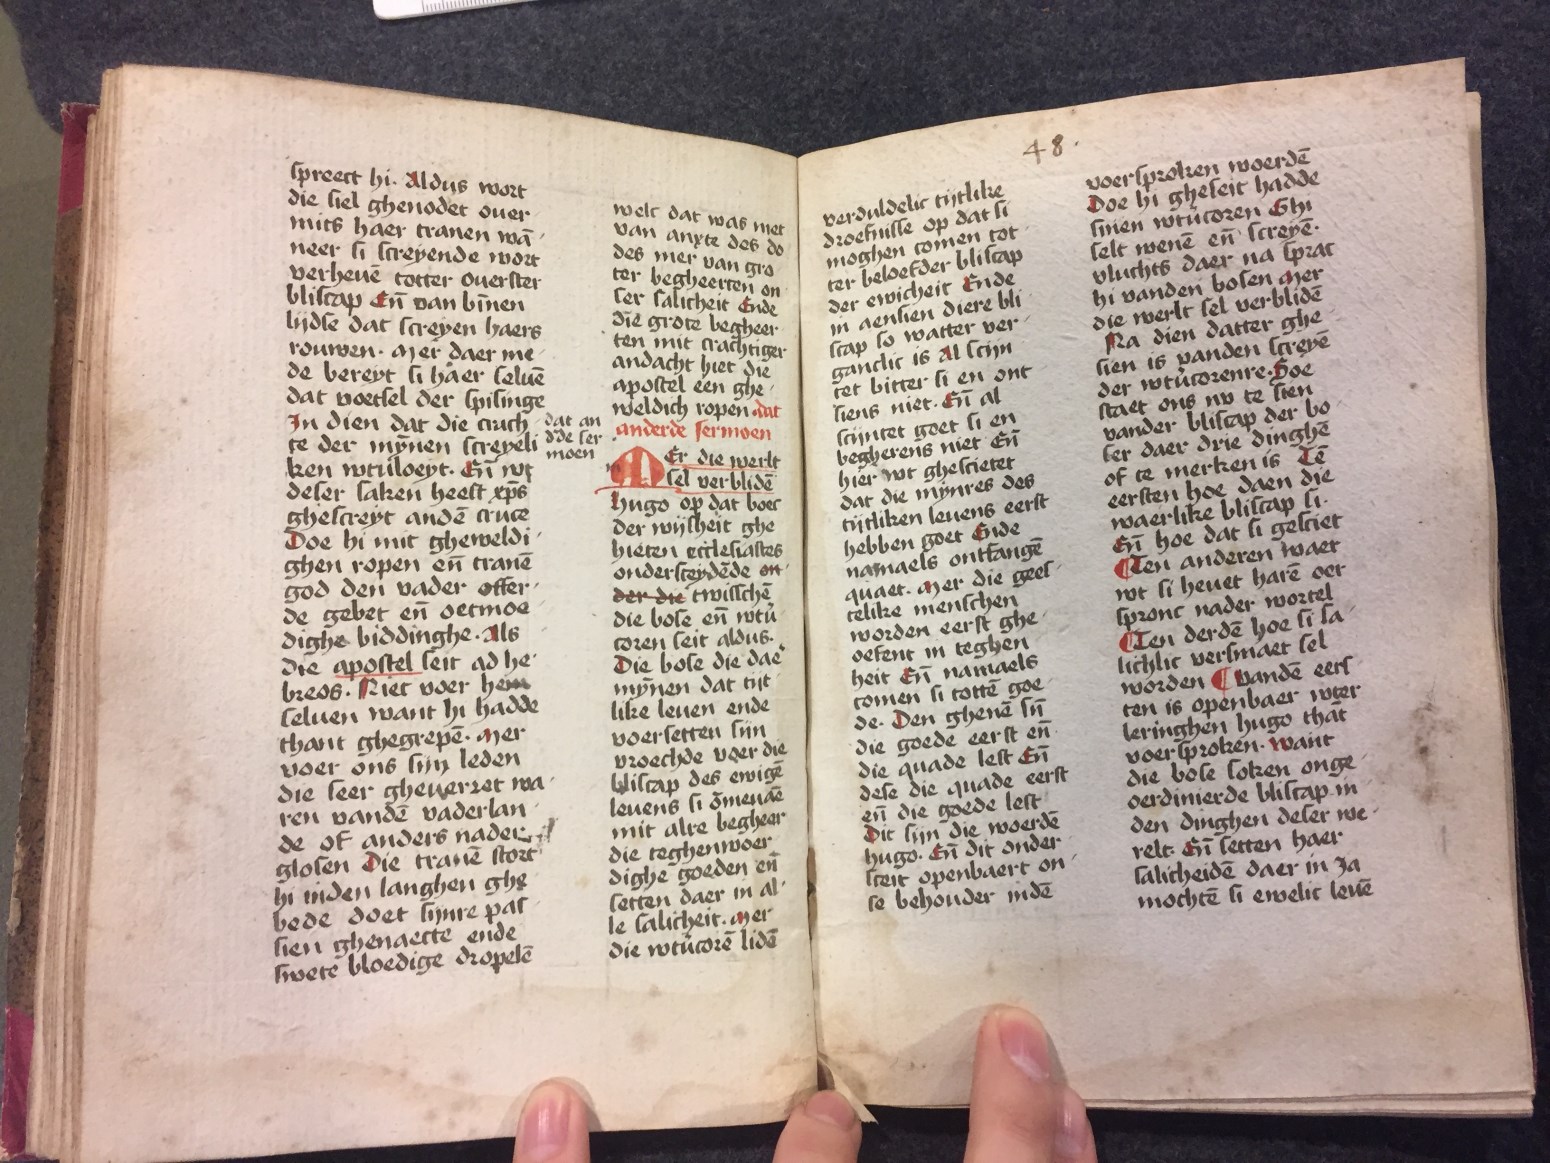 spreect hi. Aldus wort
die siel ghenodet ouer
mits haer tranen wā
neer si screyende wort
verheuē totter ouerster
bliscap Eñ van bīnen
lijdse dat screyen haers
rouwen. Mer daer me
de bereyt si haer seluē
dat voetsel der spisinge
In dien dat die cruch
te der mȳnen screyeli
ken wtuloeyt. Eñ wt
deser saken heeft xp̄s
ghescreyt andē cruce
Doe hi mit gheweldi
ghen ropen eñ tranē
god den vader offer
de gebet eñ oetmoe
dighe biddinghe. Als
die apostel seit ad he
breos. Niet voer hem
seluen want hi hadde
thant ghegrepē. Mer
voer ons sijn leden
die seer gheuerret wa
ren vandē vaderlan
de of anders nader
glosen Die tranē stort
hi inden langhen ghe
bede doet sijnre pas
sien ghenaecte ende
swete bloedige dropelē
dat an
dde ser
moen
welc dat was met
van anxte des do
des mer van gro
ter begheerten on
ser salicheit Ende
die grote begheer
ten mit crachtiger
andacht hiet die
apostel een ghe
weldich ropen dat
anderde sermoen
MEr die werlt
sel verblidē
hugo op dat boec
der wijsheit ghe
hieten ecclesiastes
ondersceydēde en
der die twisschē
die bose eñ wtū
coren seit aldus.
Die bose die dae
mȳnen dat tijt
like leuen ende
voersetten sijn
vroechde voer die
bliscap des ewigē
leuens si ōmeuaē
mit alre begheer
die teghenwoer
dighe goeden eñ
setten daer in al
le salicheit. Mer
die wtūcorē lidē
48.
verduldelic tijtlike
droefnisse op dat si
moghen comen tot
ter beloefder bliscap
der ewicheit Ende
in aensien diere bli
scap so watter ver
ganclic is Al scijn
tet bitter si en ont
siens niet. Eñ al
scijntet goet si en
begherens niet Eñ
hier wt ghescietet
dat die mynres des
tijtliken leuens eerst
hebben goet Ende
namaels ontfangē
quaet. Mer die gees
telike menschen
worden eerst ghe
oefent in teghen
heit Eñ namaels
comen si tottē goe
de. Den ghenē sij̄
die goede eerst eñ
die quade lest Eñ
dese die quade eerst
eñ die goede lest
Dit sijn die woerdē
hugo. Eñ dit onder
sceit openbaert on
se behouder indē
voersproken woerdē
Doe hi gheseit hadde
sinen wtūcoren Ghi
selt wenē eñ screyē.
vluchts daer na sprac
hi vanden bosen Mer
die werlt sel verblidē
Na dien datter ghe
sien is vanden screyē
der wtūcorenre. Soe
staet ons nv te sien
vander bliscap der bo
ser daer drie dinghē
of te merken is Tē
eersten hoe daen die
waerlike bliscap si.
Eñ hoe dat si gesciet
Ten anderen waer
wt si heuet harē oer
spronc nader wortel
Ten derdē hoe si la
lichlic versmaet sel
worden Vandē eers
ten is openbaer wter
leringhen hugo thāt
voersproken. Want
die bose soken onge
oerdinierde bliscap in
den dinghen deser we
relt. Eñ setten haer
salicheidē daer in Ja
mochtē si ewelic leuē